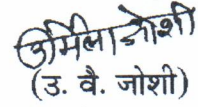 उर्मिला जोशी
(उ. वै. जोशी)